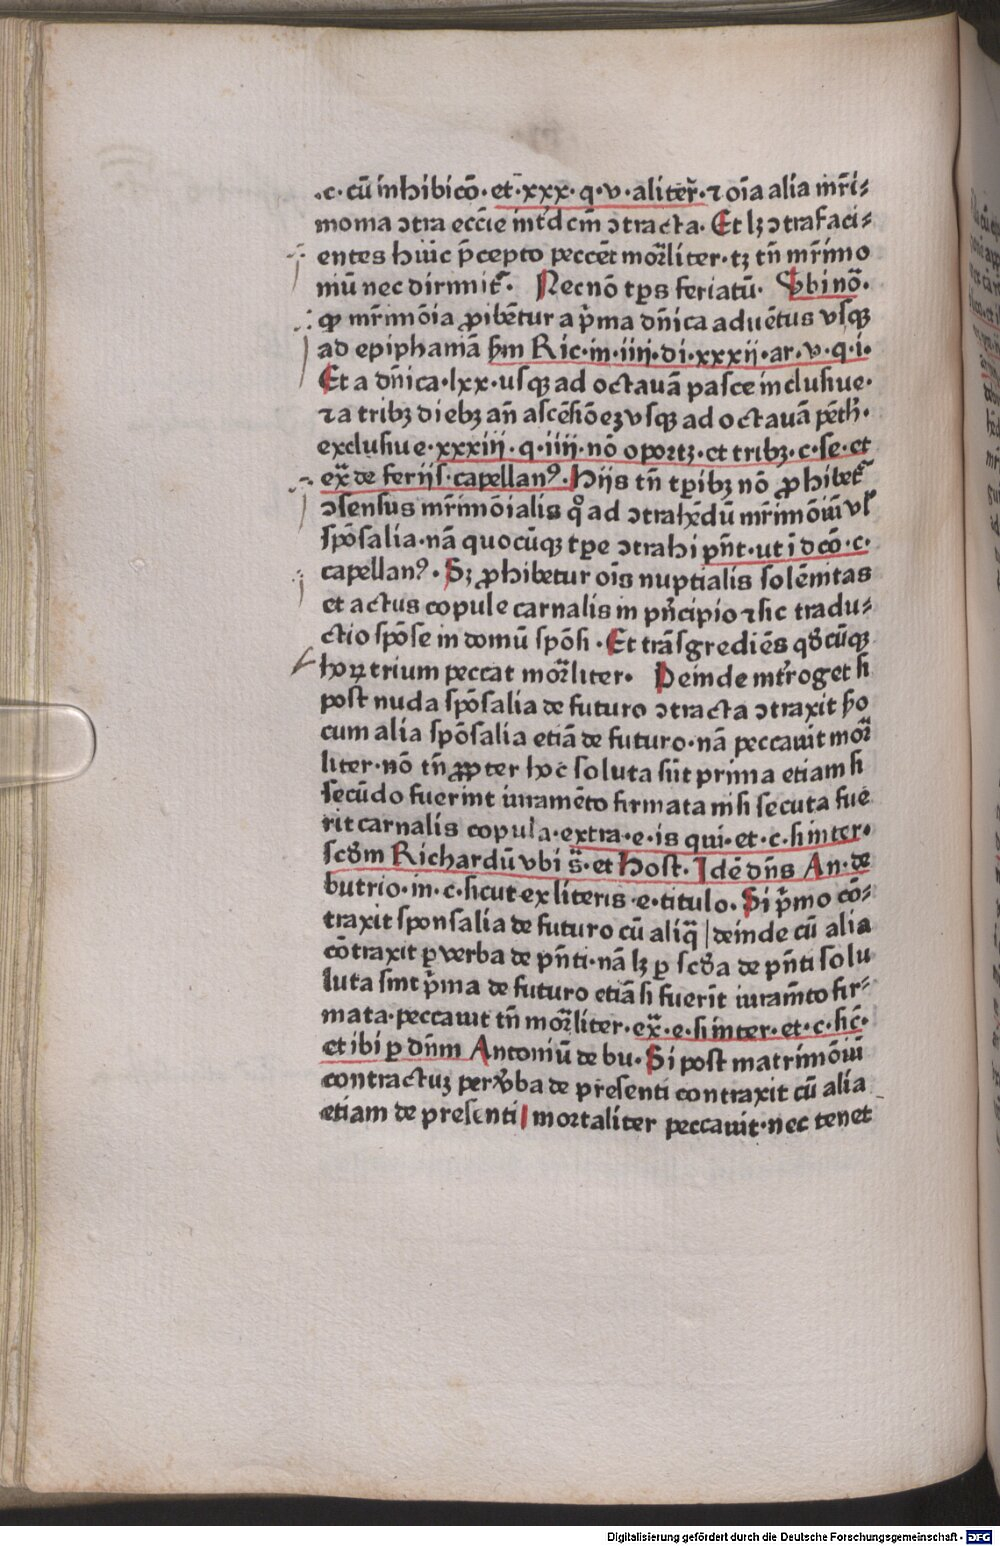 .c. cū inhibicō. et .xxx. q. v. aliter̄. ⁊ oīa alia mr̄i⸗
monia ↄtra eccīe int̄dcm̄ ↄtracta. Et lꝫ ↄtrafaci⸗
entes huic p̄cepto peccēt mor̄liter. tꝫ tn̄ mr̄imo
niū nec dirimit᷑. Necnō tp̄s feriatū. Vbi nō.
ꝙ mr̄imōia ꝓibētur a p̄ma dn̄ica aduētus vsqꝫ
ad epiphaniā ẜm Ric. in .iiij. di. xxxij. ar. v. q. i.
Et a dn̄ica .lxx. usqꝫ ad octauā pasce inclusiue.
⁊ a tribꝫ diebꝫ an̄ ascēsiōeꝫ vsqꝫ ad octauā pēth.
exclusiue .xxxiij. q. iiij. nō oportꝫ. et tribꝫ. c. se. et
ex̄ de ferijs. capellanꝰ. Hijs tn̄ tp̄ibꝫ nō ꝓhibet᷑
ↄsensus mr̄imōialis qͦ ad ↄtrahēdū mr̄imōiū vl̄
spōsalia. nā quocūqꝫ tp̄e ↄtrahi pn̄t. ut ī dcō. c.
capellanꝰ. Sꝫ ꝓhibetur oīs nuptialis solēnitas
et actus copule carnalis in pn̄cipio ⁊ sic tradu⸗
ctio spōse in domū spōsi. Et trāsgrediēs qdcūqꝫ
hoꝝ trium peccat mor̄liter. Deinde int̄roget si
post nuda spōsalia de futuro ↄtracta ↄtraxit ho
cum alia spōsalia etiā de futuro. nā peccauit mor̄
liter. nō tn̄ ꝓpter hoc soluta sūt prima etiam si
secūdo fuerint iuramēto firmata nisi secuta fue
rit carnalis copula. extra. e. is qui. et. c. si inter.
scdm Richardū vbi s̄. et Host. Idē dn̄s An. de
butrio. in. c. sicut ex literis. e. titulo. Si p̄mo cō⸗
traxit sponsalia de futuro cū aliq̄ | deinde cū alia
cōtraxit ꝑ verba de pn̄ti. nā lꝫ ꝑ scda de pn̄ti solu
luta sint p̄ma de futuro etiā si fuerīt iuram̄to fir⸗
mata. peccauit tn̄ mor̄liter. ex̄. e. si inter. et. c. sic̄.
et ibi ꝑ dn̄m Antoniū de bu. Si post matrimōiū
contractuꝫ per v̄ba de presenti contraxit cū alia
etiam de presenti | mortaliter peccauit. nec tenet
Digitalisierung gefördert durch die Deutsche Forschungsgemeinschaft - DFG